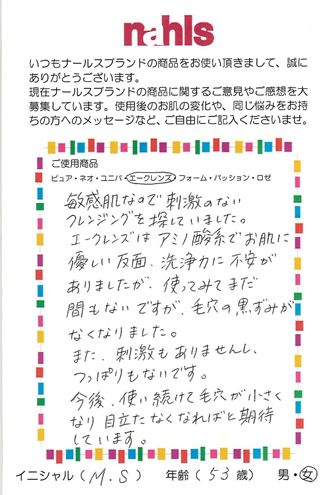 nahls
いつもナールスブランドの商品をお使い頂きまして、誠に
ありがとうございます。
現在ナールスブランドの商品に関するご意見やご感想を大
募集しています。使用後のお肌の変化や、同じ悩みをお持
ちの方へのメッセージなど、ご自由にご記入くださいませ。
ご使用商品
ピュア・ネオ・ユニバ・エークレンズ・フォーム・パッション・ロゼ
敏感肌なので刺激のない
クレンジングを探していました。
エークレンズはアミノ酸系でお肌に
優しい反面、洗浄力に不安が
ありましたが、使ってみてまだ
間もないですが、毛穴の黒ずみが
なくなりました。
また、刺激もありませんし、
つっぱりもないです。
今後、使い続けて毛穴が小さく
なり目立たなくなればと期待
しています。
イニシャル(M.S) 年齢(53歳) 男・女